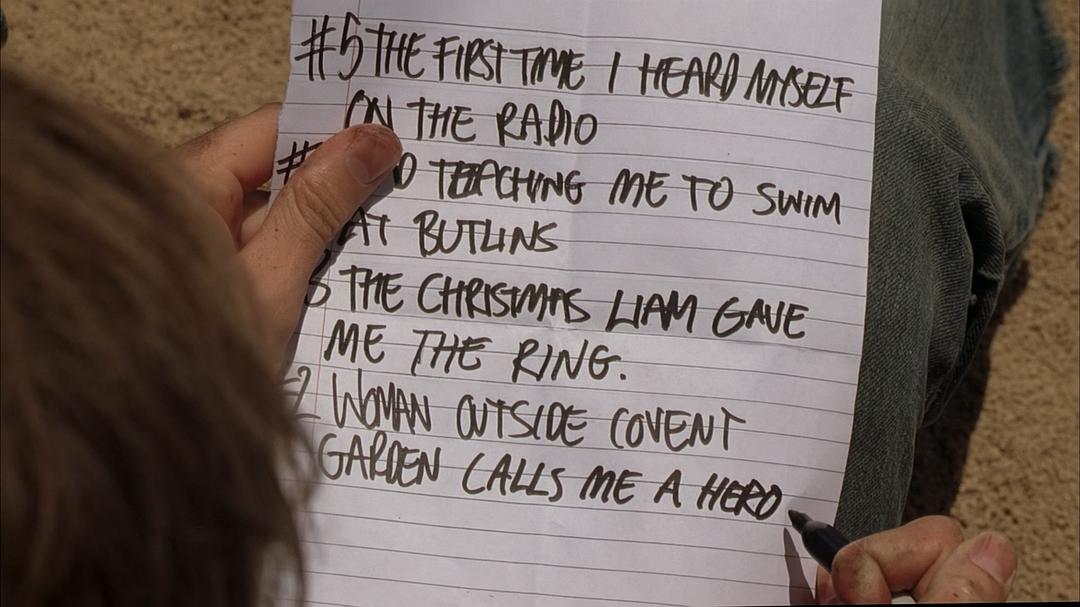 #5 THE FIRST TIME I HEARD MYSELF
ON THE RADIO
TEACHING ME TO SWIM
AT BUTLINS
3 THE CHRISTMAS LIAM GAVE
ME THE RING.
#2 WOMAN OUTSIDE COVENT
GARDEN CALLS ME A HERO